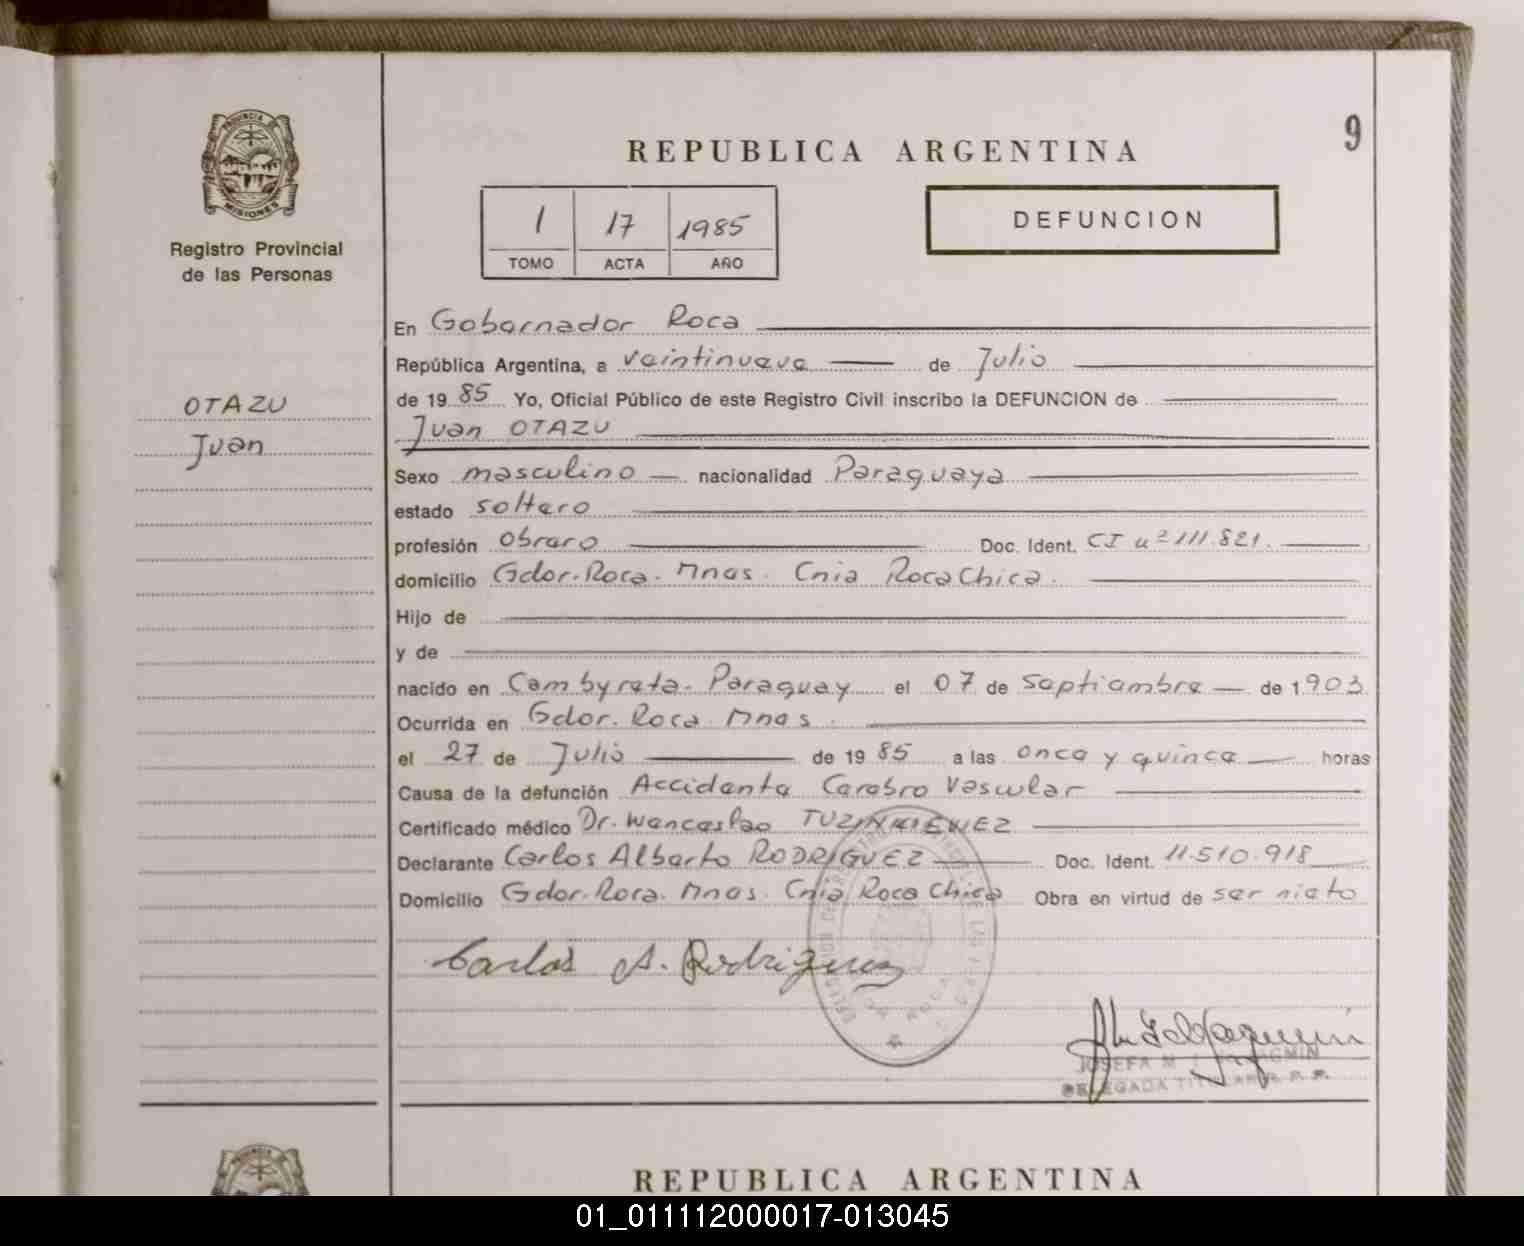 9
REPUBLICA ARGENTINA
PROVINCIA DE MISIONES
1 17 1985
TOMO ACTA AÑO
DEFUNCION
Registro Provincial
de las Personas
OTAZU
Juan
En Gobernador Roca
República Argentina, a veintinueve de Julio
de 19 85 Yo, Oficial Público de este Registro Civil inscribo la DEFUNCION de
Juan OTAZU
Sexo masculino nacionalidad Paraguaya
estado soltero
profesión obrero Doc. Ident. CI nº 111.821.
domicilio Gdor. Roca. Mnes. Cnia Roca Chica.
Hijo de
y de
nacido en Cambyreta. Paraguay el 07 de septiembre de 1903
Ocurrida en Gdor. Roca Mnes.
el 27 de Julio de 19 85 a las once y quince horas
Causa de la defunción Accidente Cerebro Vascular
Certificado médico Dr. Wenceslao TUZINKIEWEZ
Declarante Carlos Alberto RODRIGUEZ Doc. Ident. 11.510.918
Domicilio Gdor. Roca. Mnes. Cnia Roca Chica Obra en virtud de ser nieto
Carlos A. Rodriguez
JOSEFA M.
DELEGADA TITULAR R. P. P.
REPUBLICA ARGENTINA
01_011112000017-013045